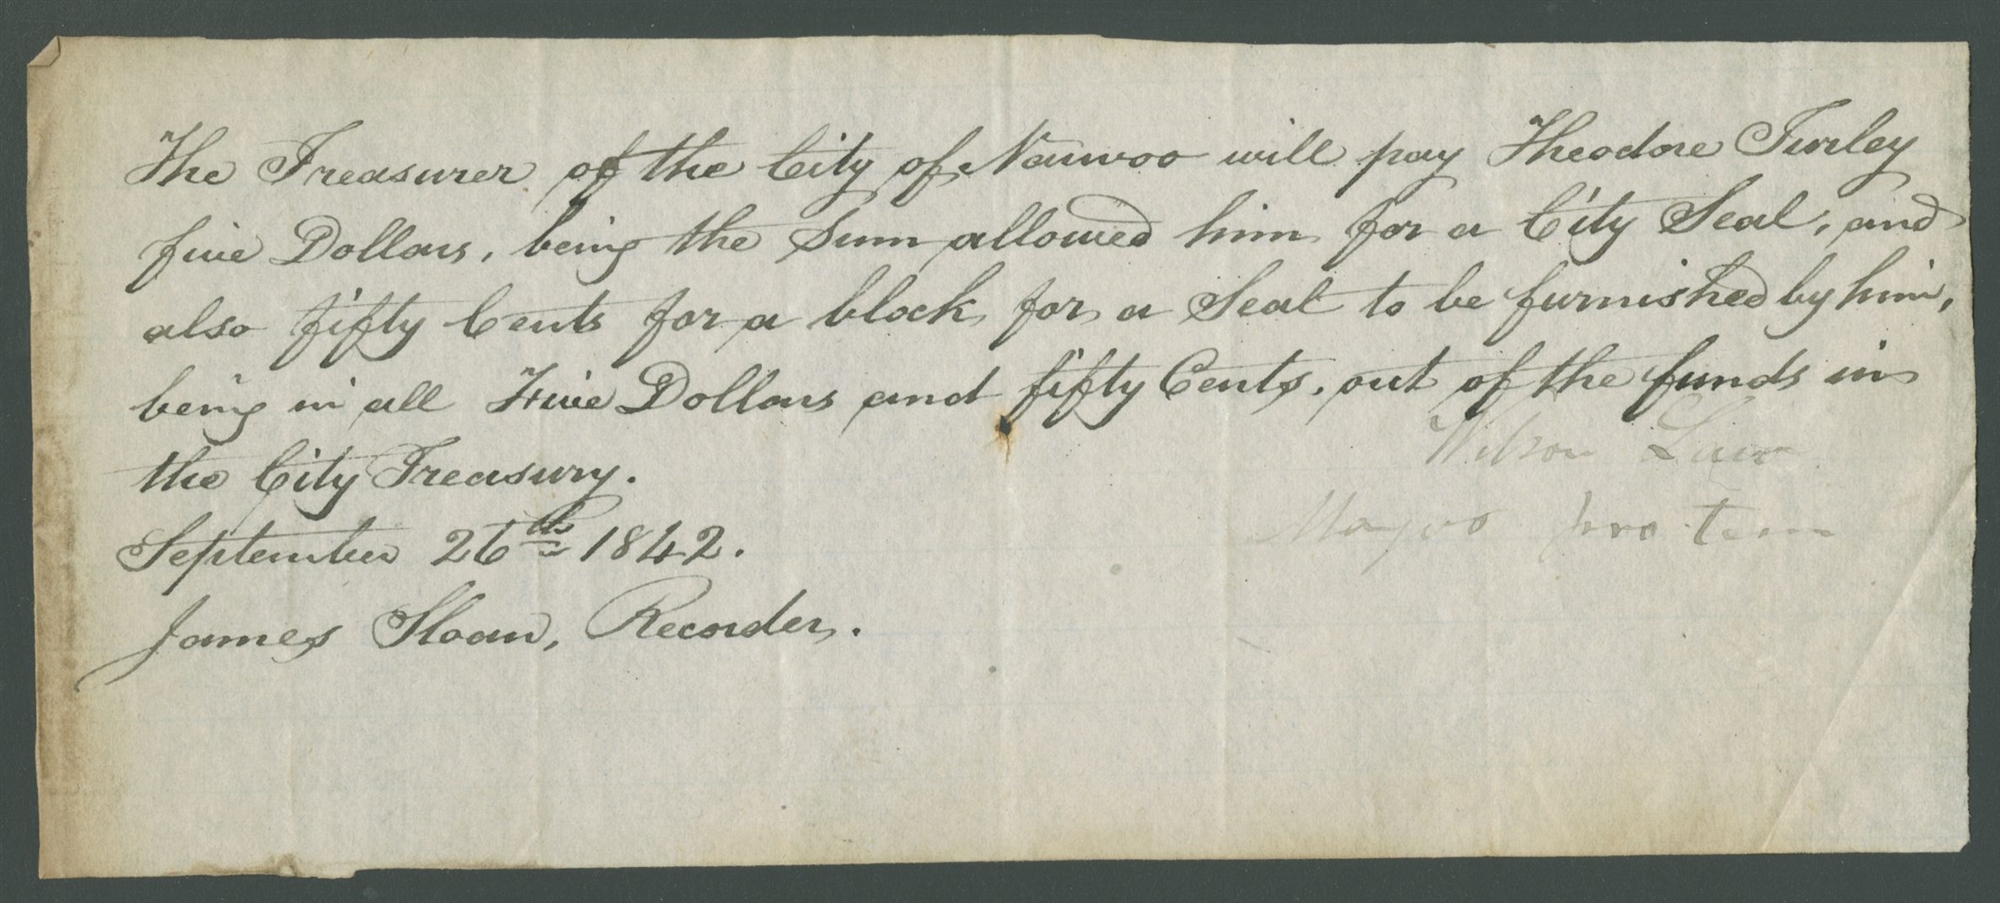 The Treasurer of the City of Nauvoo will pay Theodore Turley
five Dollars, being the Sum allowed him for a City Seal, and
also fifty Cents for a block for a Seal to be furnished by him,
being in all Five Dollars and fifty Cents, out of the funds in
the City Treasury.
Wilson Law
Mayor pro. tem
September 26th 1842.
James Sloan, Recorder.